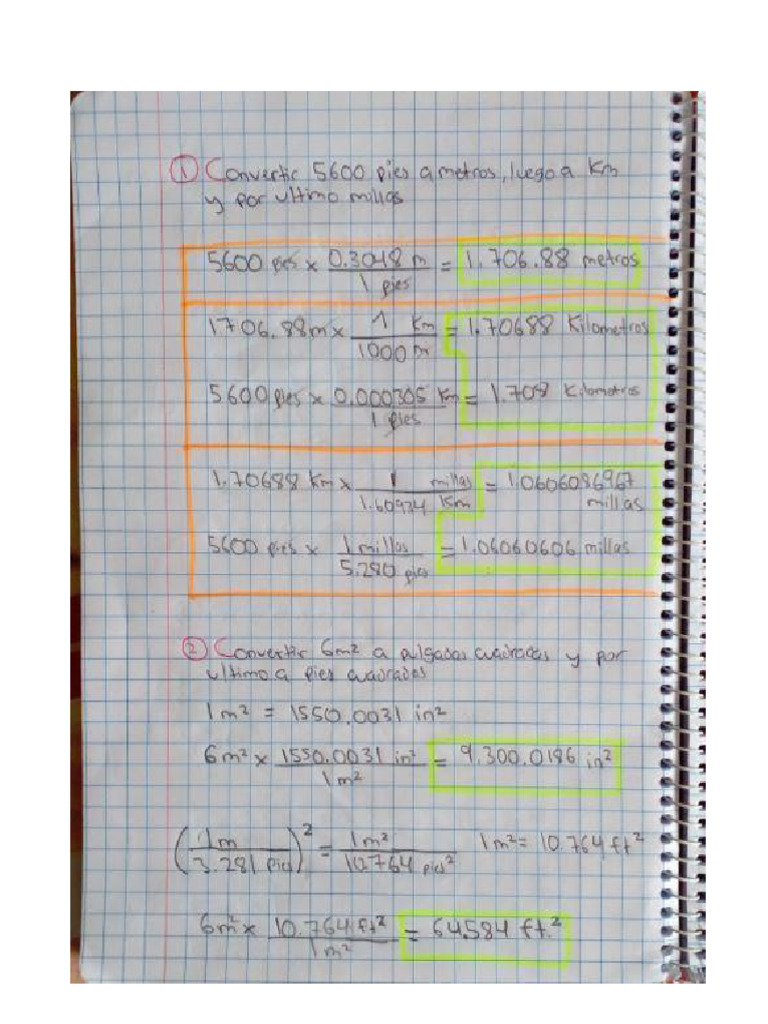 ① Convertir 5600 pies a metros, luego a Km
y por ultimo millas
5600 pies x 0.3048 m / 1 pies = 1.706.88 metros
1706.88m x 1 Km / 1000 m = 1.70688 Kilometros
5600 pies x 0.000305 Km / 1 pies = 1.708 Kilometros
1.70688 Km x 1 millas / 1.60934 Km = 1.0606086967 millas
5600 pies x 1 millas / 5.280 pies = 1.06060606 millas
② Convertir 6m² a pulgadas cuadradas y por
ultimo a pies cuadrados
1m² = 1550.0031 in²
6m² x 1550.0031 in² / 1m² = 9.300.0186 in²
(1m / 3.281 pies)² = 1m² / 10.764 pies² 1m² = 10.764 ft²
6m² x 10.764 ft² / 1m² = 64.584 ft.²